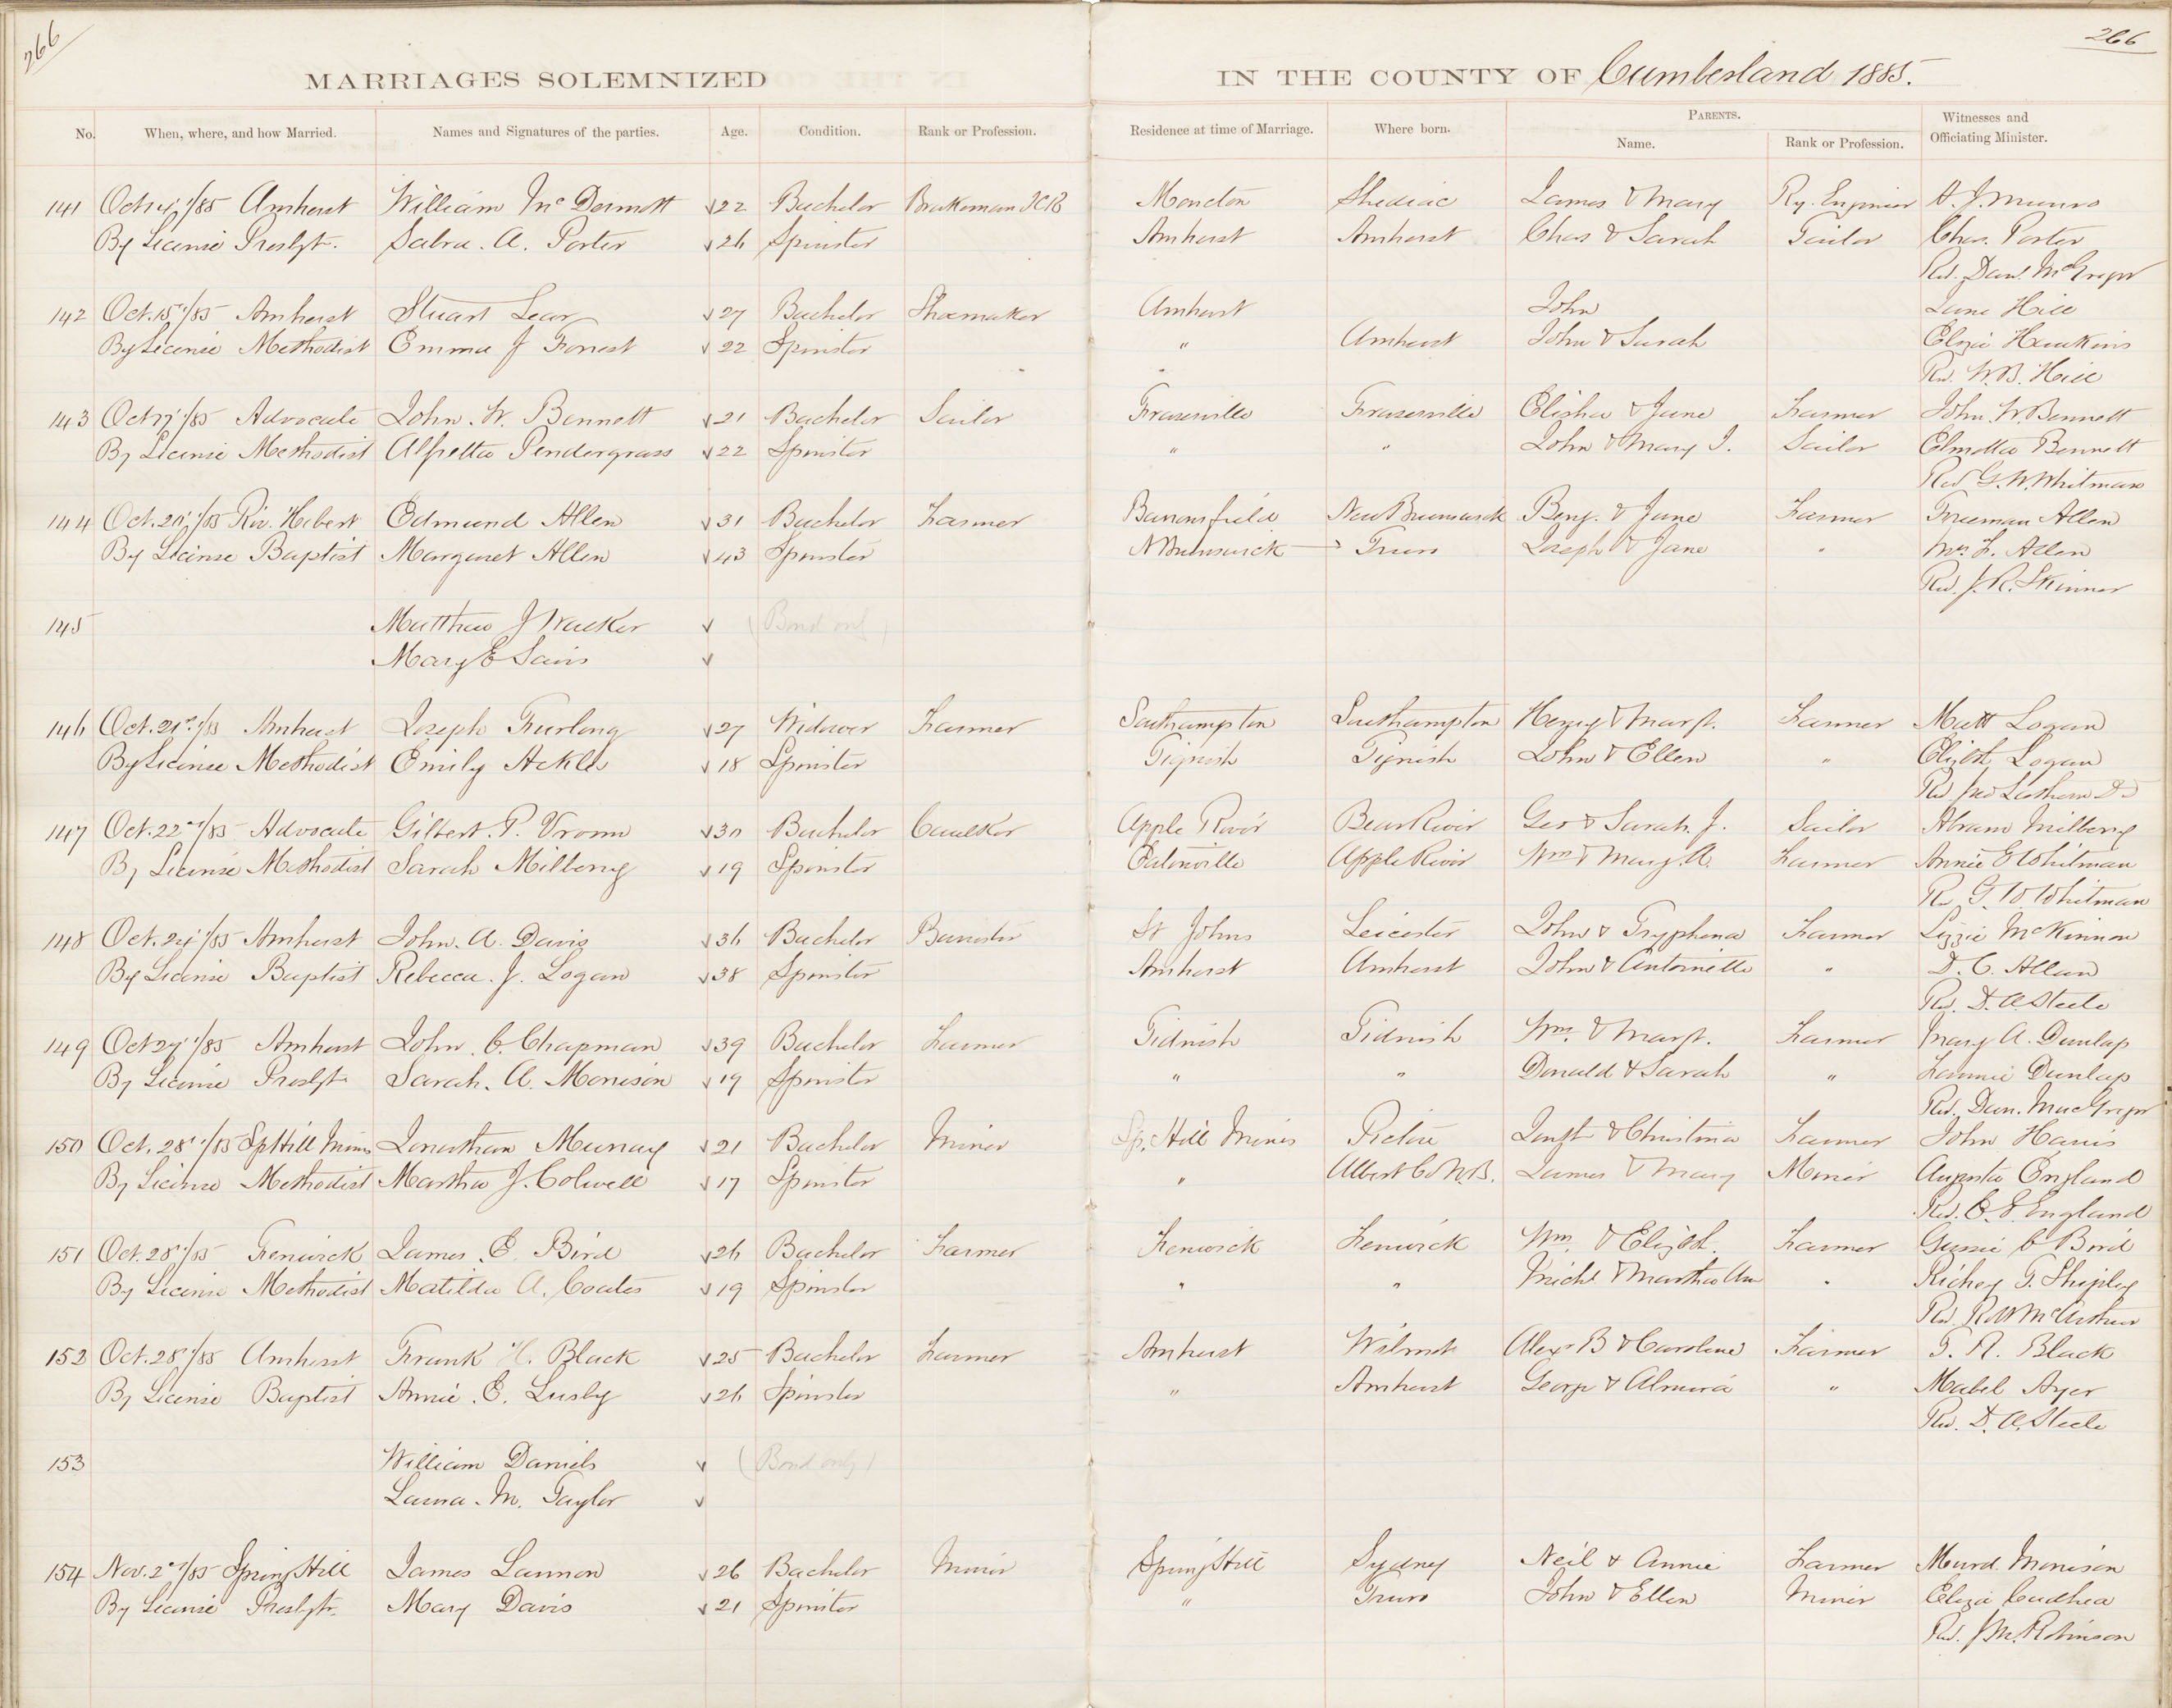 266
266
MARRIAGES SOLEMNIZED IN THE COUNTY OF Cumberland 1885.
No. When, where, and how Married. Names and Signatures of the parties. Age. Condition. Rank or Profession. Residence at time of Marriage. Where born. PARENTS. Witnesses and
Name. Rank or Profession. Officiating Minister.
141 Oct 14th/85 Amherst William McDermott √22 Bachelor Brakeman ICR Moncton Shediac James & Mary Ry. Enginier A. J. Munro
By License Presbyt. Sabra. A. Porter √26 Spinster Amherst Amherst Chas & Sarah Tailor Chas. Porter
Rev. Danl. McGregor
142 Oct. 15th/85 Amherst Stuart Lear √27 Bachelor Shoemaker Amherst John Jane Hill
By License Methodist Emma J Forrest √22 Spinster " Amherst John & Sarah Eliza Hawkins
Rev. W. B. Hill
143 Oct 17th/85 Advocate John. W. Bennett √21 Bachelor Sailor Fraserville Fraserville Elisha & Jane Farmer John W. Bennett
By License Methodist Alfretta Pendergrass √22 Spinster " " John & Mary J. Sailor Elmetta Bennett
Rev G. W. Whitman
144 Oct. 20th/85 Riv. Hebert Edmund Allen √31 Bachelor Farmer Barronsfield New Brunswick Benj. & Jane Farmer Freeman Allen
By License Baptist Margaret Allen √43 Spinster N Brunswick Truro Joseph & Jane " Mrs. F. Allen
Rev. J. R. Skinner
145 Matthew J Walker √ (Bond only)
Mary E √
146 Oct. 21st/85 Amherst Joseph Furlong √27 Widower Farmer Southampton Southampton Henry & Margt. Farmer Matt Logan
By License Methodist Emily Ackles √18 Spinster Tignish Tignish John & Ellen " Elizbth Logan
Rev
147 Oct. 22nd/85 Advocate Gilbert. P. Vroom √30 Bachelor Caulker Apple River Bear River Geo & Sarah. J. Sailor Abram Milberry
By License Methodist Sarah Milberry √19 Spinster Eatonville Apple River Wm & Mary. A. Farmer Annie E Whitman
Rev G. W. Whitman
148 Oct. 24th/85 Amherst John. A. Davis √36 Bachelor Barrister St Johns Leicester John & Tryphena Farmer Lizzie McKinnon
By License Baptist Rebecca. J. Logan √38 Spinster Amherst Amherst John & Antoinette " D. C. Allan
Rev. D. A. Steele
149 Oct 27th/85 Amherst John. C. Chapman √39 Bachelor Farmer Tidnish Tidnish Wm. & Margt. Farmer Mary A. Dunlap
By License Presbyt Sarah. A. Morrison √19 Spinster " " Donald & Sarah " Fannie Dunlap
Rev. Dan. MacGregor
150 Oct. 28th/85 Sp Hill Mines Jonathan Murray √21 Bachelor Miner Sp. Hill Mines Pictou & Christina Farmer John Harris
By License Methodist Martha J. Colwell √17 Spinster " Albert Co N.B. James & Mary Miner Augusta England
Rev. E. E England
151 Oct. 28th/85 Fenwick James E. Bird √26 Bachelor Farmer Fenwick Fenwick Wm. & Elizbth. Farmer Gussie C Bird
By License Methodist Matilda A. Coates √19 Spinster " " Michl & Martha Ann " Richey T. Shipley
Rev. McArthur
152 Oct. 28th/85 Amherst Frank H. Black √25 Bachelor Farmer Amherst Wilmot Alex B & Caroline Farmer T. R. Black
By License Baptist Annie. E. Lusby √26 Spinster " Amherst George & Almira " Mabel Ayer
Rev. D. A. Steele
153 William Daniels √ (Bond only)
Laura. M. Taylor √
154 Nov. 2nd/85 Spring Hill James Lannon √26 Bachelor Miner Spring Hill Sydney Neil & Annie Farmer Murd. Morrison
By License Presbyt. Mary Davis √21 Spinster " Truro John & Ellen Miner Eliza Cudhea
Rev. J. M. Robinson